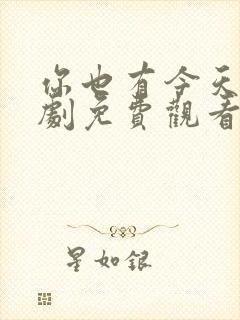 你也有今天
劇免費觀看
星如銀